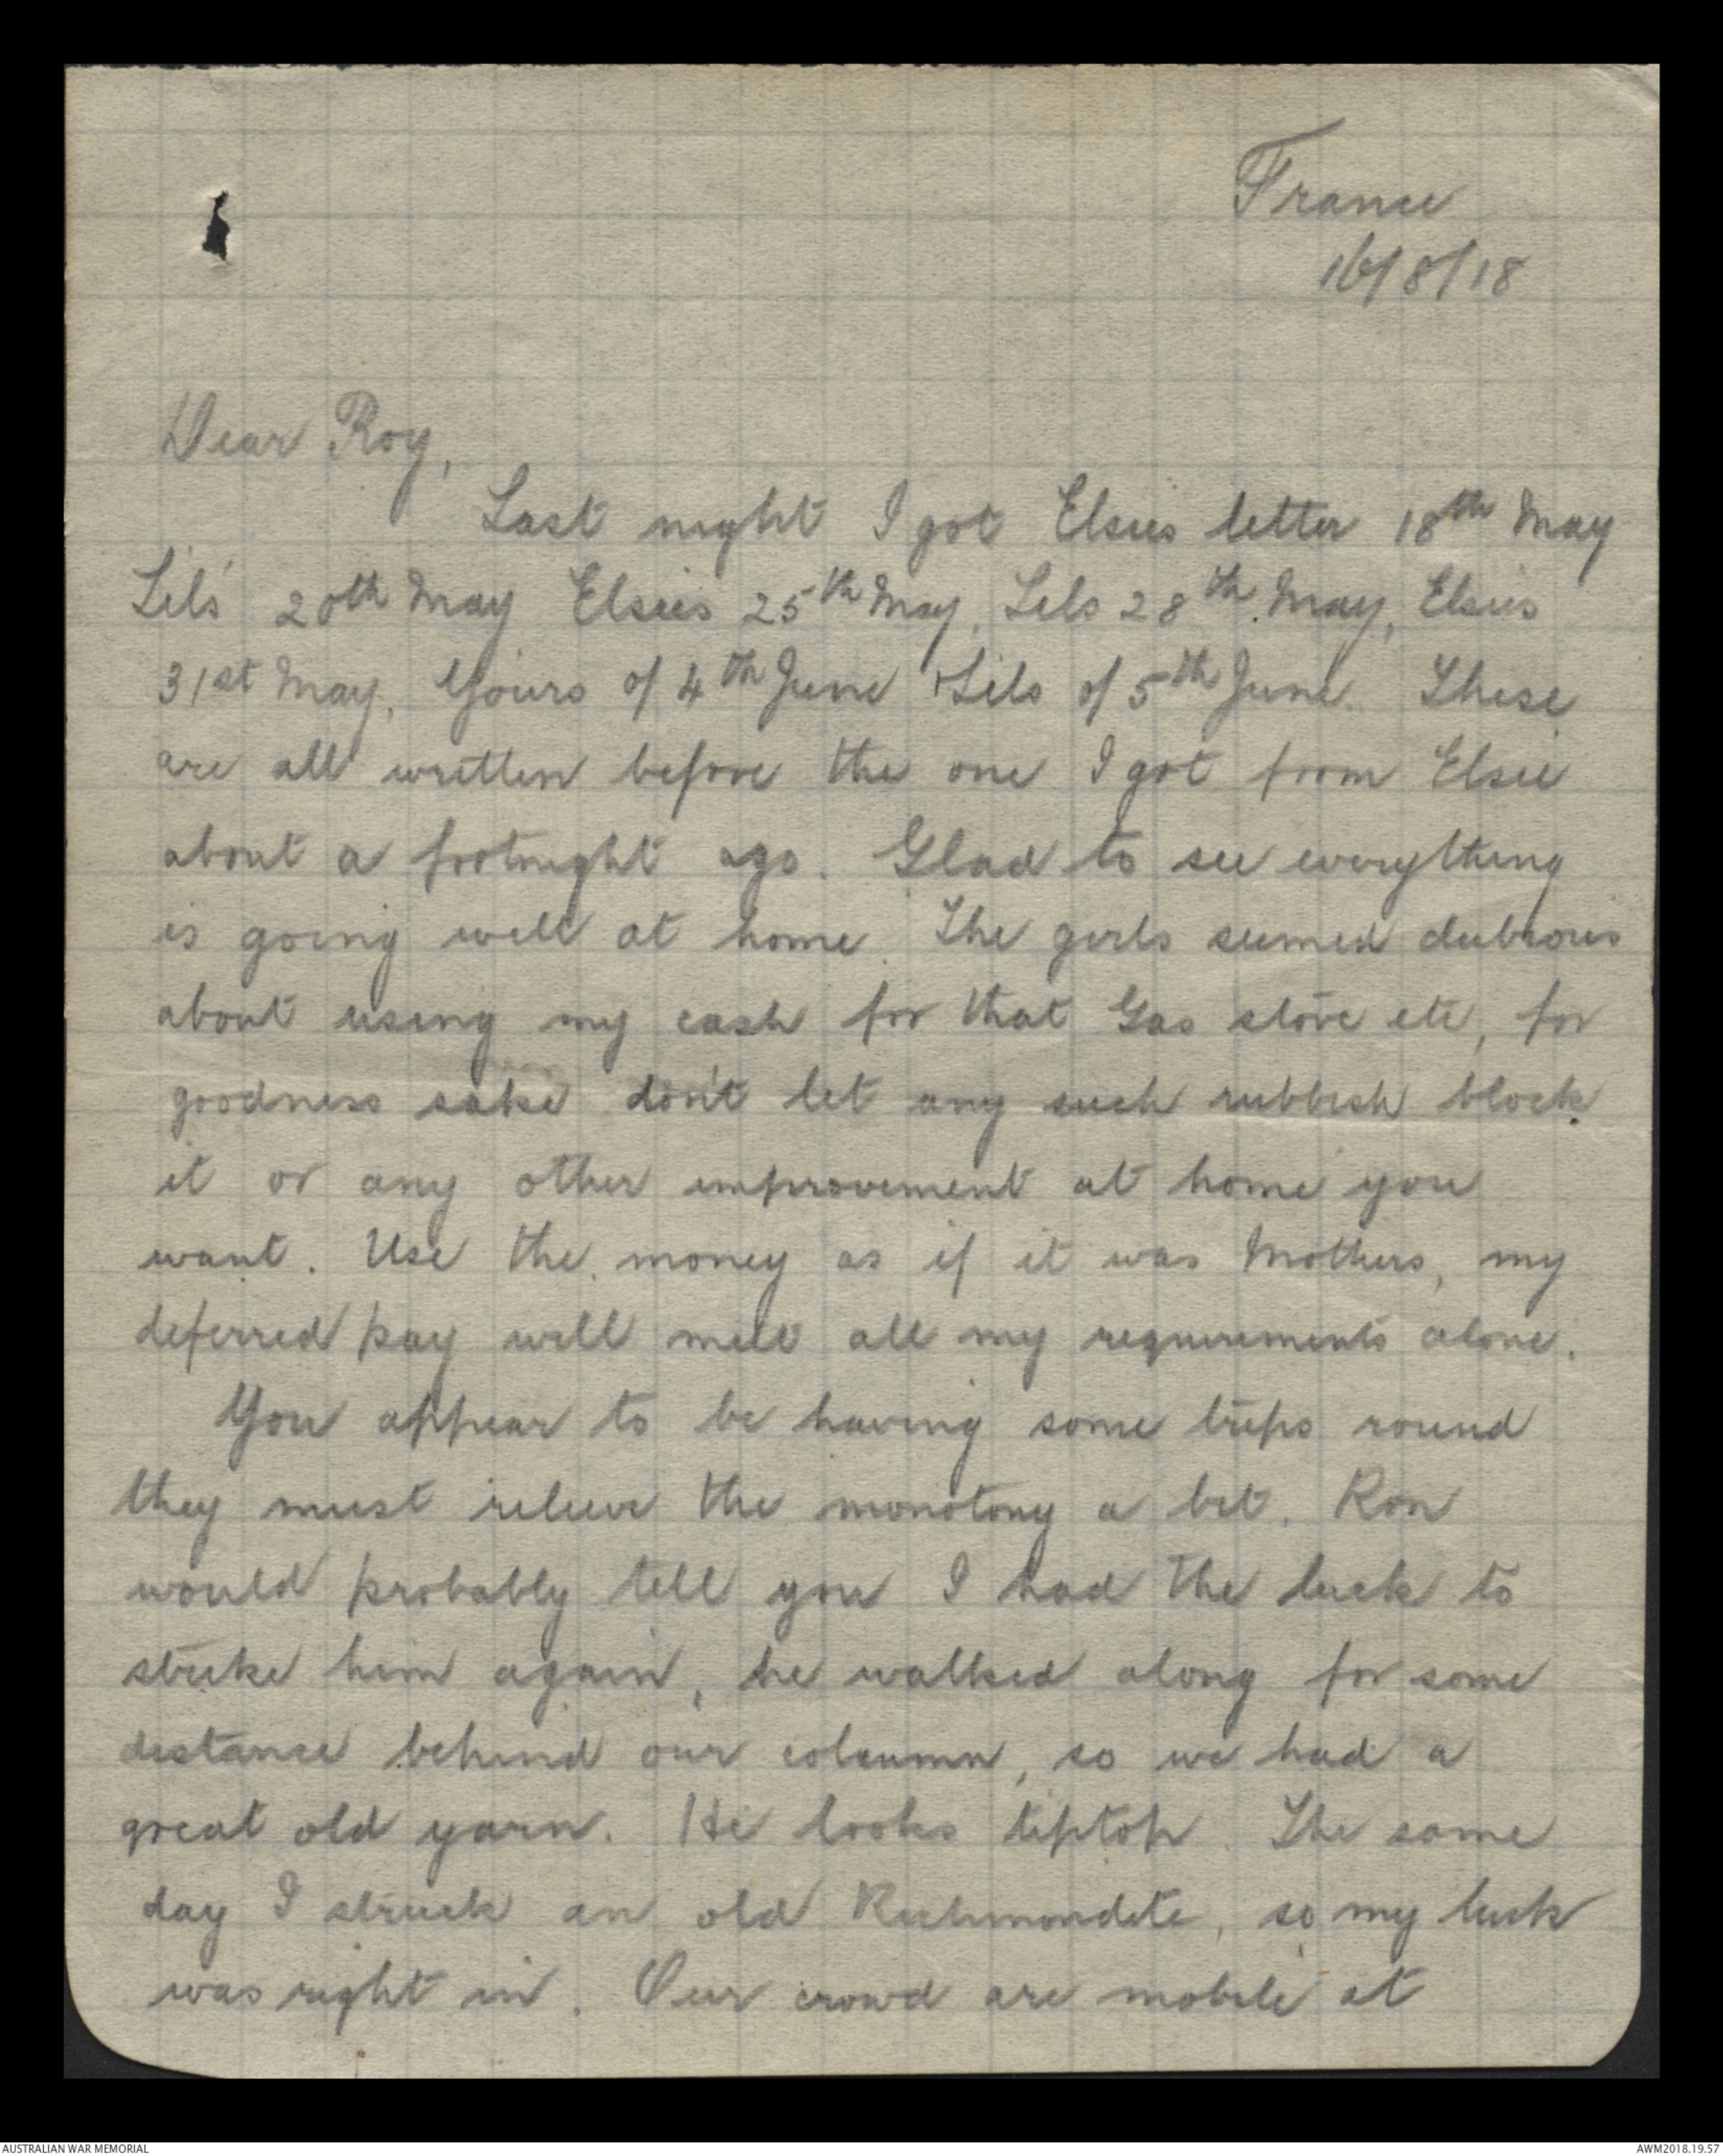 France
16/8/18
Dear Roy,
Last night I got Elsies letter 18th May
Lils 20th May Elsies 25th May, Lils 28th May, Elsies
31st May, Yours of 4th June & Lils of 5th June. These
are all written before the one I got from Elsie
about a fortnight ago. Glad to see everything
is going well at home. The girls seemed dubious
about using my cash for that Gas stove etc, for
goodness sake don't let any such rubbish block
it or any other improvement at home you
want. Use the money as if it was Mothers, my
deferred pay will meet all my requirements alone.
You appear to be having some trips round
they must relieve the monotony a bit. Ron
would probably tell you I had the luck to
strike him again, he walked along for some
distance behind our coloumn, so we had a
great old yarn. He looks tiptop. The same
day I struck an old Richmondite, so my luck
was right in. Our crowd are mobile at
AUSTRALIAN WAR MEMORIAL
AWM2018.19.57